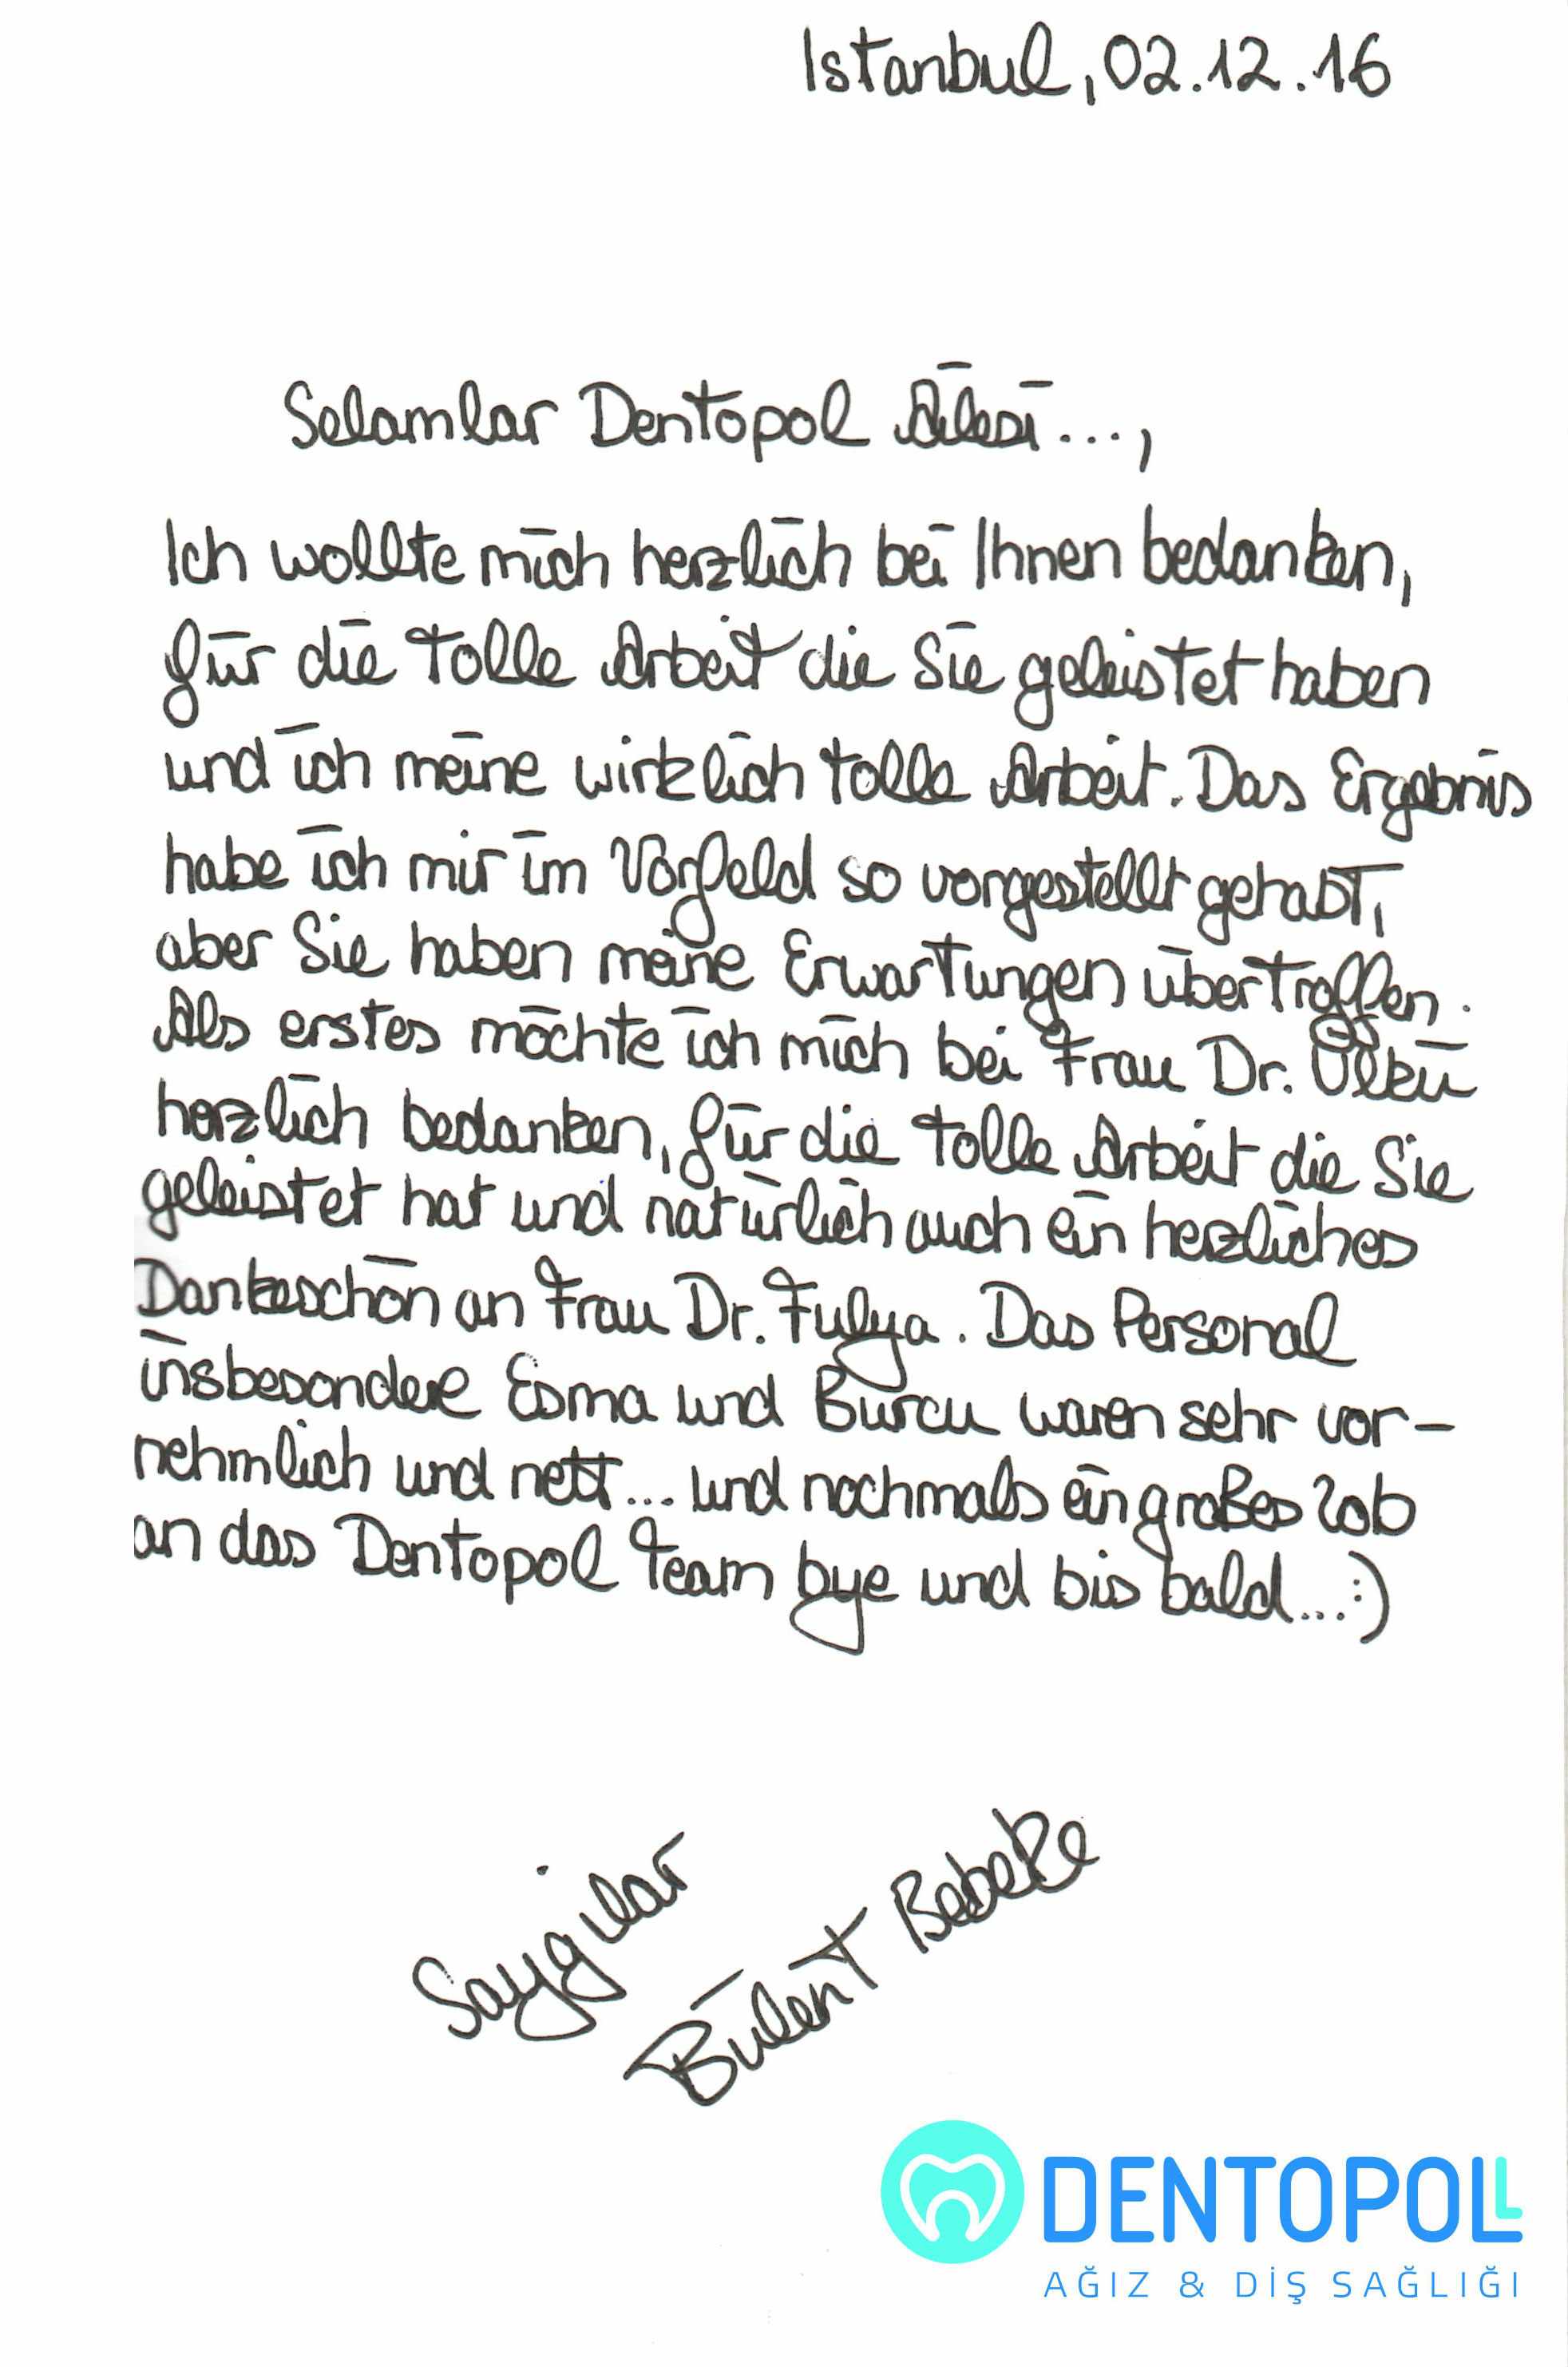 Istanbul, 02.12.16
Selamlar Dentopol Ailesi...,
Ich wollte mich herzlich bei Ihnen bedanken,
für die tolle Arbeit die Sie geleistet haben
und ich meine wirklich tolle Arbeit. Das Ergebnis
habe ich mir im Vorfeld so vorgestellt gehabt,
aber Sie haben meine Erwartungen übertroffen.
Als erstes möchte ich mich bei Frau Dr. Ülkü
herzlich bedanken, für die tolle Arbeit die Sie
geleistet hat und natürlich auch ein herzliches
Dankeschön an Frau Dr. Fulya. Das Personal
insbesondere Esma und Burcu waren sehr vor-
nehmlich und nett... und nochmals ein großes Lob
an das Dentopol Team bye und bis bald...:)
Saygılar
Bülent Bebek
DENTOPOLL
AĞIZ & DİŞ SAĞLIĞI